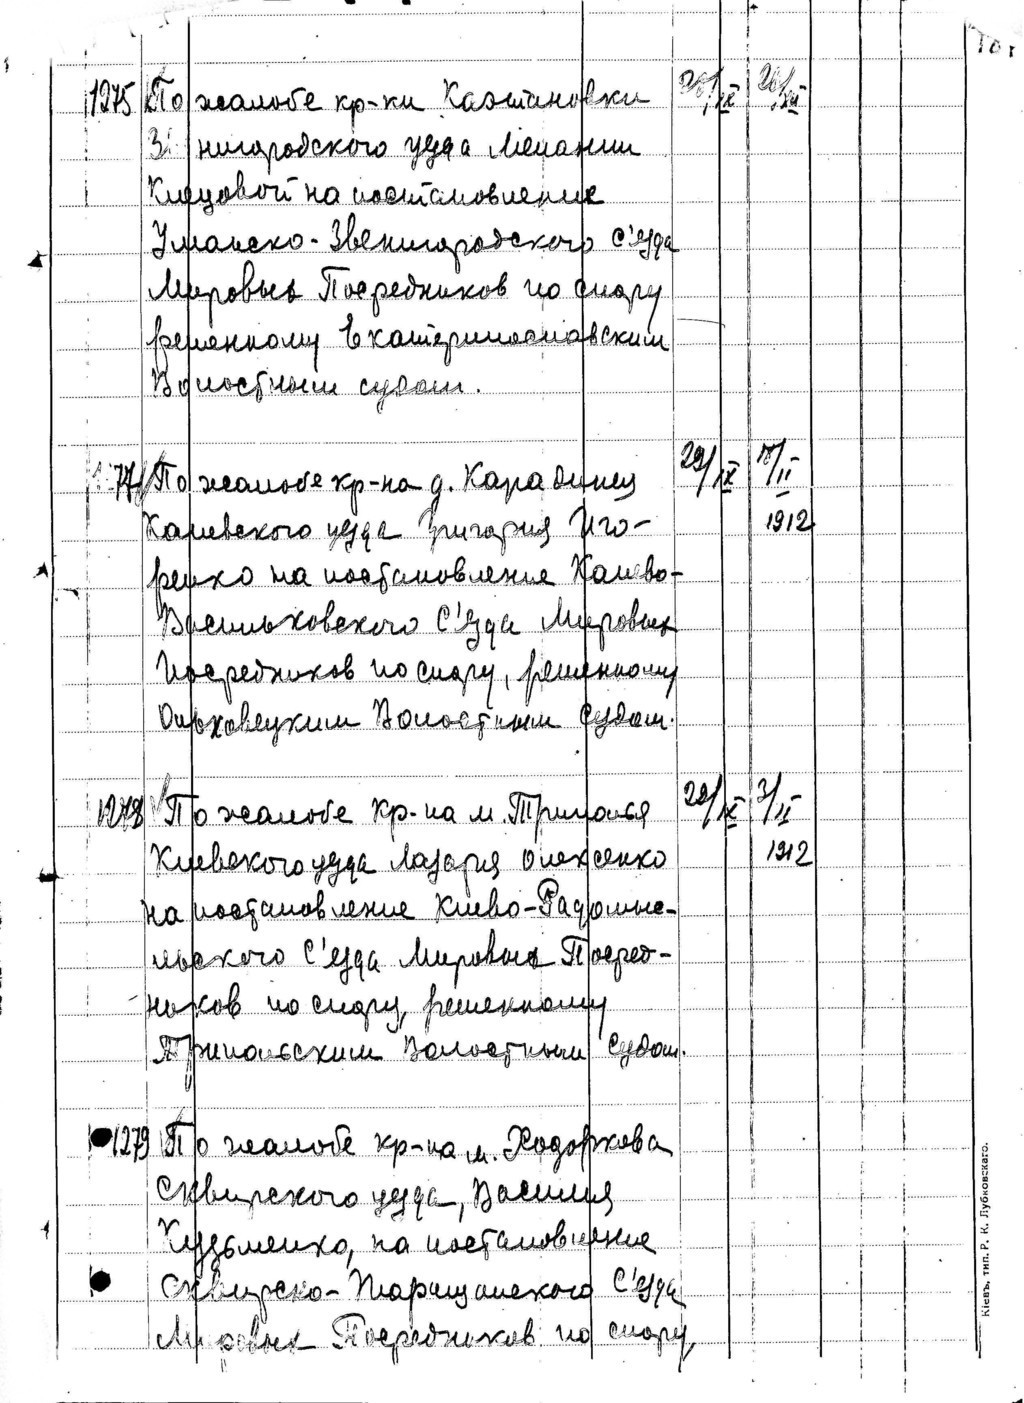 1275 По жалобе кр-ки Каэтановки 26/IX 20/XII
Звенигородского уезда Мелании
на постановление
Уманско-Звенигородского С'езда
Мировых Посредников по спору
решенному Екатеринославским
Волостным судом.
77 По жалобе кр-на д. Карадинец 29/IX 18/II
Каневского уезда Григория Иго- 1912
ренко на постановление Канево-
Васильковского С'езда Мировых
Посредников по спору, решенному
Ольховецким Волостным Судом.
1278 По жалобе кр-на м. Триполья 29/IX 3/II
Киевского уезда Лазаря Олексенко 1912
на постановление Киево-Радомыс-
льского С'езда Мировых Посред-
ников по спору, решенному
Трипольским Волостным Судом.
1279 По жалобе кр-на м. Ходоркова
Сквирского уезда, Василия
Кузьменко, на постановление
Сквирско-Таращанского С'езда
Мировых Посредников по спору,
Кіевъ, тип. Р. К. Лубковскаго.